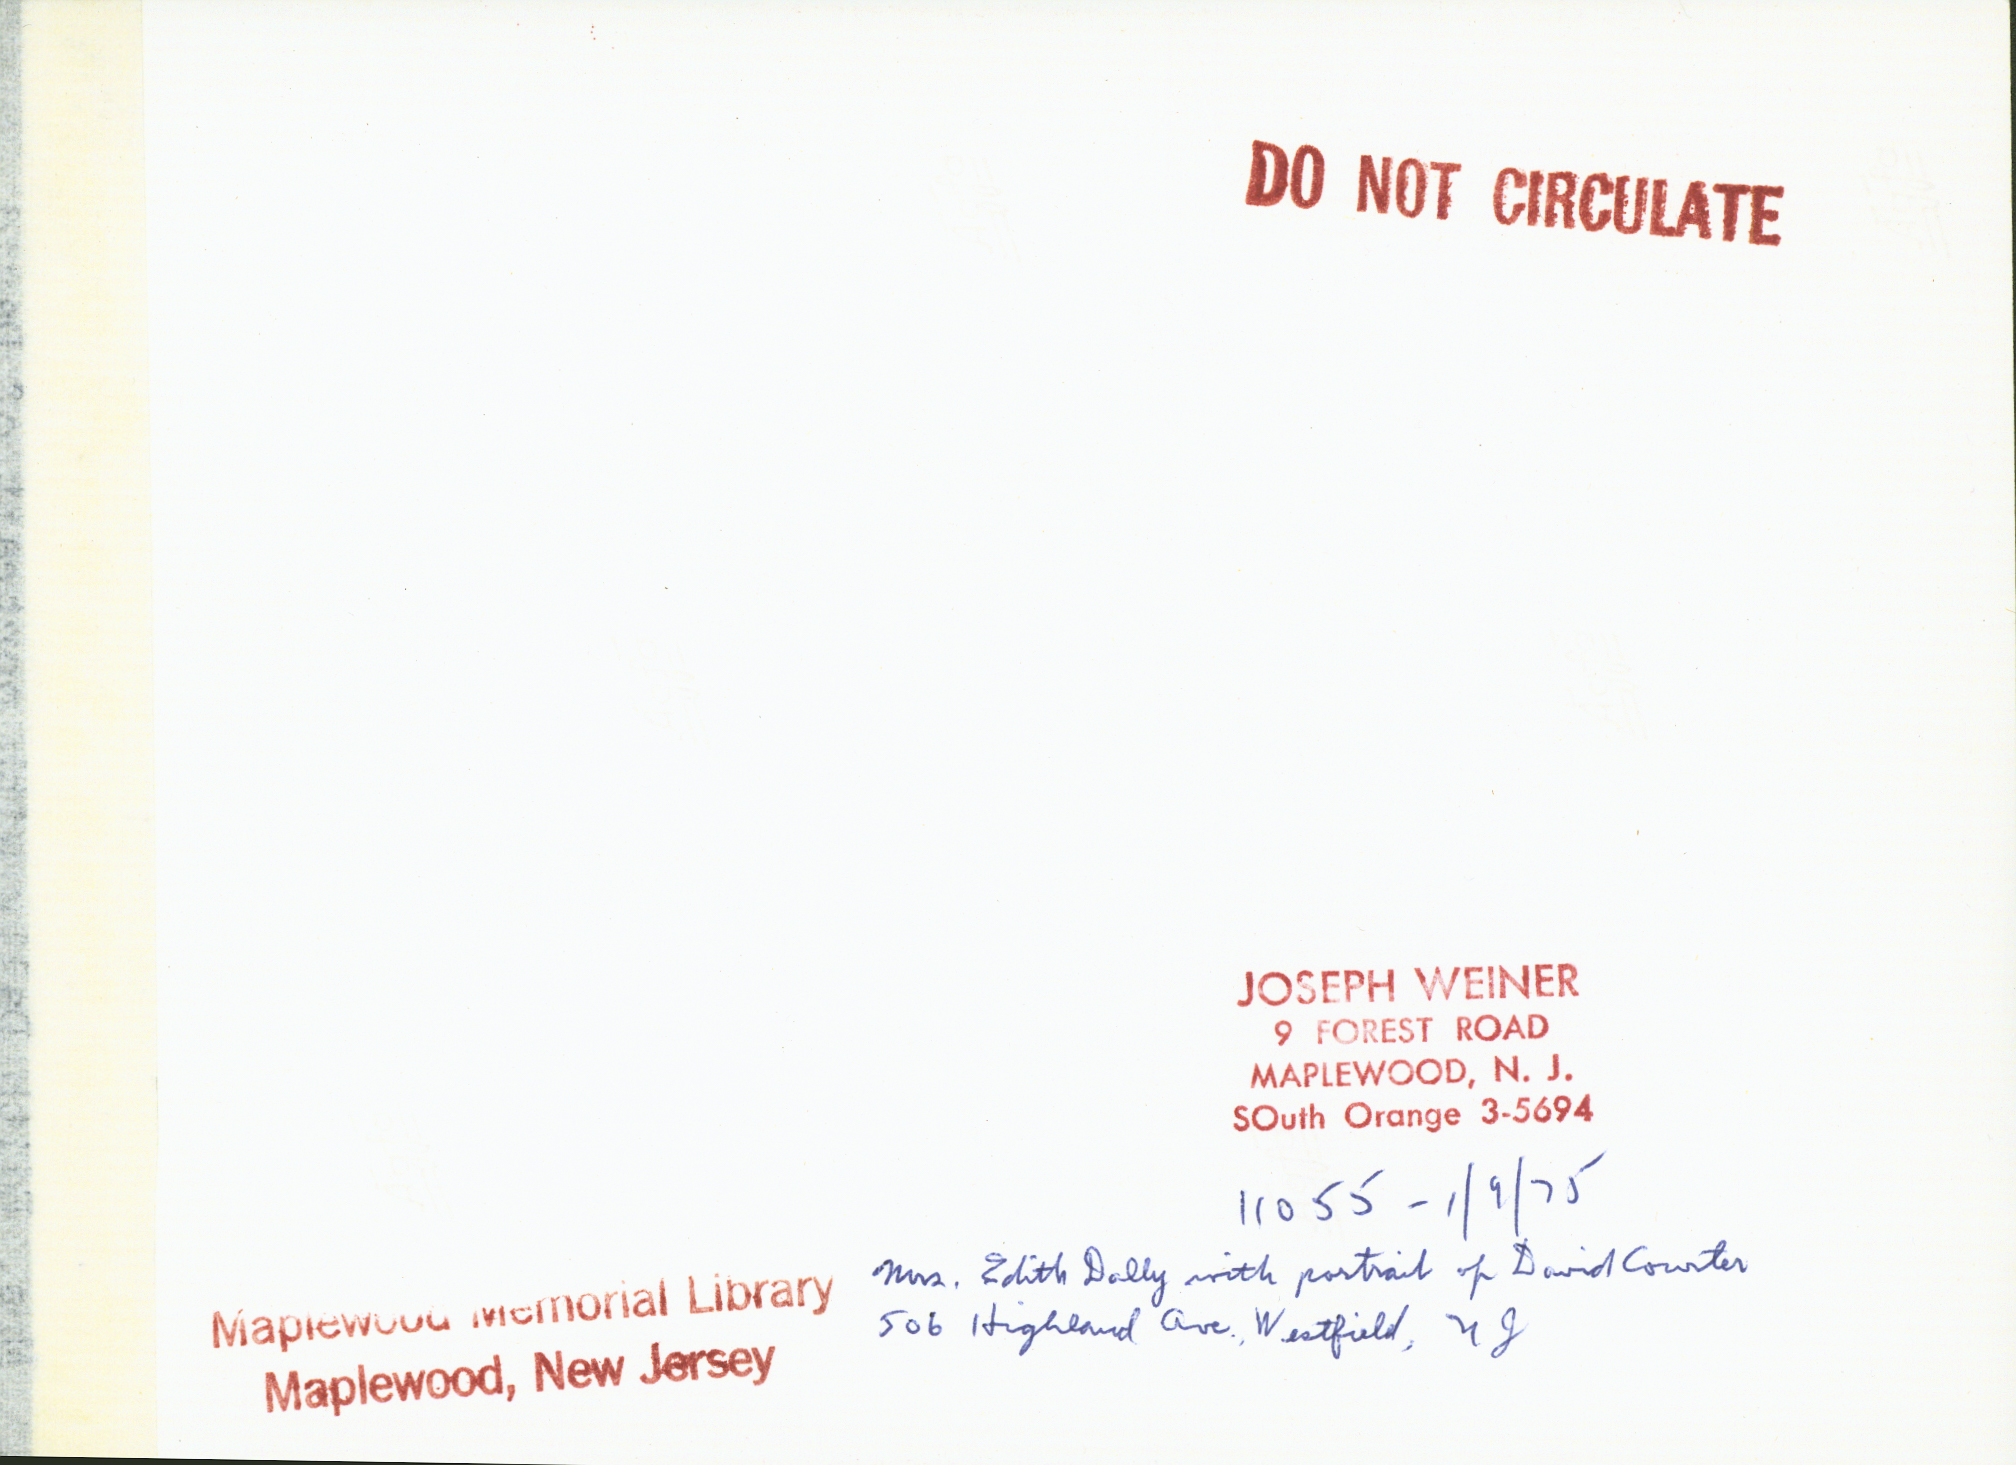 DO NOT CIRCULATE
JOSEPH WEINER
9 FOREST ROAD
MAPLEWOOD, N. J.
SOuth Orange 3-5694
11055 - 1/9/75
Mrs. Edith Dally with portrait of David Courter
506 Highland Ave., Westfield, NJ
Maplewood Memorial Library
Maplewood, New Jersey